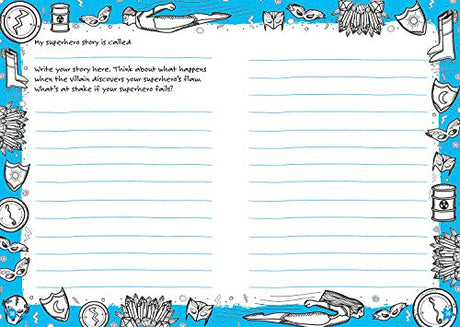 My superhero story is called
Write your story here. Think about what happens
when the villain discovers your superhero's flaw.
What's at stake if your superhero fails?